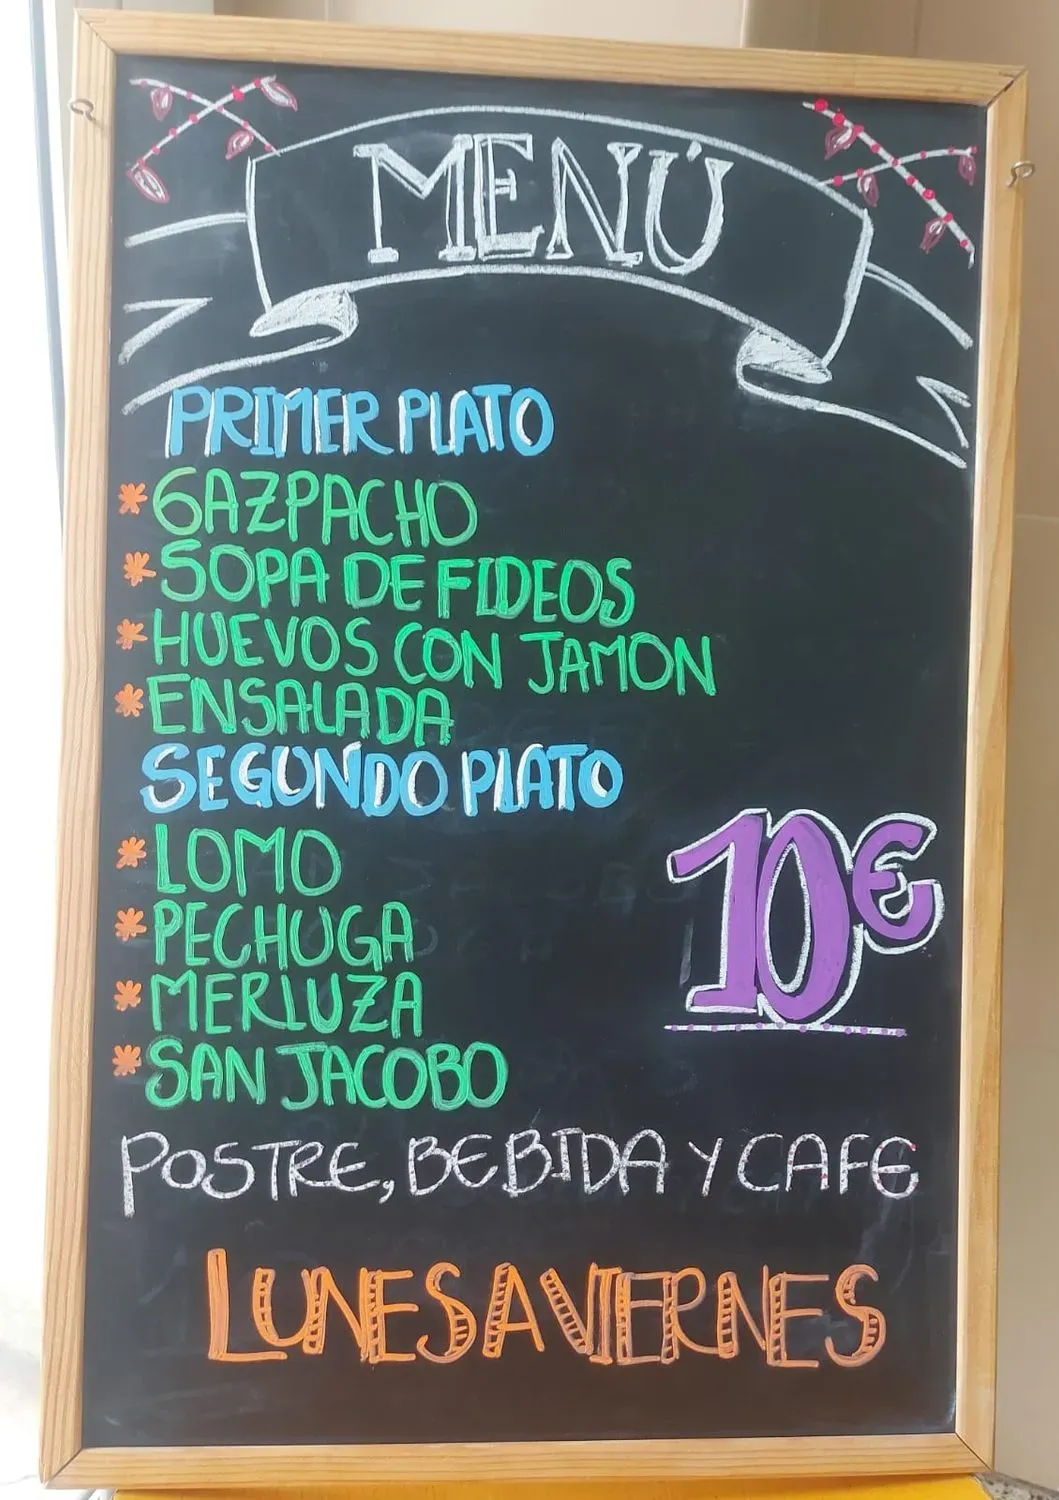 MENÚ
PRIMER PLATO
*GAZPACHO
*SOPA DE FIDEOS
*HUEVOS CON JAMON
*ENSALADA
SEGUNDO PLATO
*LOMO
*PECHUGA
*MERLUZA
*SAN JACOBO
10€
POSTRE, BEBIDA Y CAFE
LUNES A VIERNES